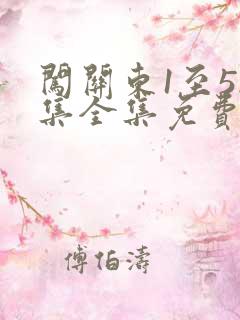 闖關東1至5
集全集免費
傅伯濤